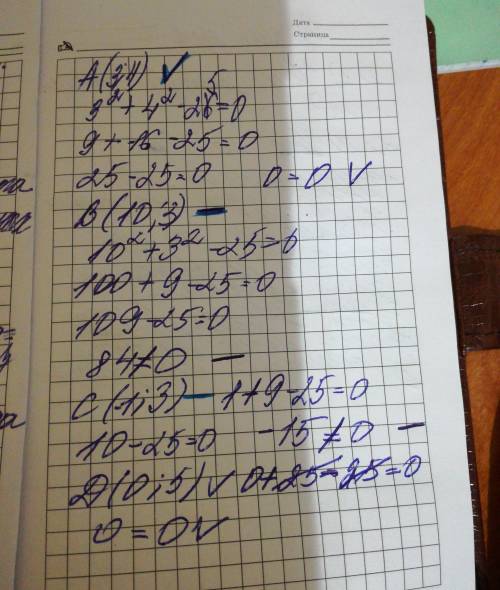 Дата
Страница
A(3;4) ✓
3² + 4² - 25 = 0
9 + 16 - 25 = 0
25 - 25 = 0 0 = 0 V
B(10;3) —
10² + 3² - 25 = 0
100 + 9 - 25 = 0
109 - 25 = 0
84 ≠ 0 —
C(-1;3) — 1+9-25=0
10 - 25 = 0 -15 ≠ 0 —
D(0;5) V 0+25-25=0
0 = 0 V